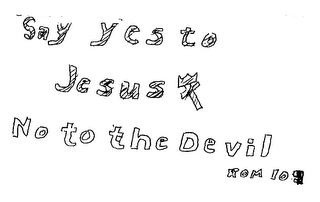 Say yes to
Jesus
No to the Devil
ROM 10